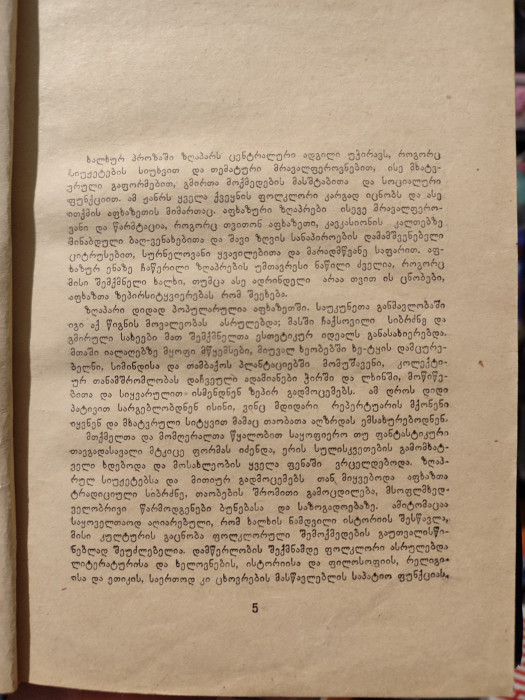 ხალხურ პროზაში ზღაპარს ცენტრალური ადგილი უპირავს, როგორც
სიუჟეტების სიუხვით და თემატური მრავალფეროვნებით, ისე მხატვ-
ვრული გაფორმებით, გმირთა მოქმედების მასშტაბითა და სოციალური
ფუნქციით. ამ ჟანრს ყველა ქვეყნის ფოლკლორი კარგად იცნობს და ასე
ითქმის აფხაზეთის მიმართაც. აფხაზური ზღაპრები ისევე მრავალფერო-
ვანი და წარმტაცია, როგორც თვითონ აფხაზეთი, კავკასიონის კალთებზე
მინაბდული ბაღ-ვენახებითა და შავი ზღვის სანაპიროების დამამშვენებელი
ციტრუსებით, სურნელოვანი ყვავილებითა და მარადმწვანე საფარით. აფ-
ხაზურ ენაზე ჩაწერილი ზღაპრების უმთავრესი ნაწილი ძველია, როგორც
მისი შემქმნელი ხალხი, თუმცა ასე ადრინდელი არაა თვით ის ცნობები,
აფხაზთა ზეპირსიტყვიერებას რომ შეეხება.
ზღაპარი დიდად პოპულარულია აფხაზეთში. საუკუნეთა განმავლობაში
იგი აქ წიგნის მოვალეობას ასრულებდა; მასში ჩაქსოვილი სიბრძნე და
გმირული სახეები მათ შემქმნელთა ესთეტიკურ იდეალს განასახიერებდა.
მთაში იალაღებზე მყოფი მწყემსები, მიუვალ ხეობებში ხე-ტყის დამცურე-
ბელნი, სიმინდისა და თამბაქოს პლანტაციებში მომუშავენი, კოლექტი-
ურ თანამშრომლობას დაჩვეული ადამიანები ჭირში და ლხინში, მოწიწე-
ბითა და სიყვარულით ისმენდნენ ზეპირ გადმოცემებს. ამ დროს დიდი
პატივით სარგებლობდნენ ისინი, ვინც მდიდარი რეპერტუარის მქონენი
იყვნენ და მხატვრული სიტყვით მამაც თაობათა აღზრდას ემსახურებოდნენ.
მთქმელთა და მომღერალთა წყალობით საყოფიერო თუ ფანტასტიკური
თავგადასავალი მტკიცე ფორმას იძენდა, ერის სულისკვეთების გამომხატ-
ველი ხდებოდა და მოსახლეობის ყველა ფენაში ვრცელდებოდა. ზღაპ-
რულ სიუჟეტებსა და მითიურ გადმოცემებს თან მიყვებოდა აფხაზთა
ტრადიციული სიბრძნე, თაობების შრომითი გამოცდილება, მსოფლმხედ-
ველობრივი წარმოდგენები ბუნებასა და საზოგადოებაზე. ამიტომაცაა
საყოველთაოდ აღიარებული, რომ ხალხის ნამდვილი ისტორიის შესწავლა,
მისი კულტურის გაცნობა ფოლკლორული შემოქმედების გაუთვალისწი-
ნებლად შეუძლებელია. დამწერლობის შექმნამდე ფოლკლორი ასრულებდა
ლიტერატურისა და ხელოვნების, ისტორიისა და ფილოსოფიის, რელიგი-
ისა და ეთიკის, საერთოდ კი ცხოვრების მასწავლებლის საპატიო ფუნქციას.
5